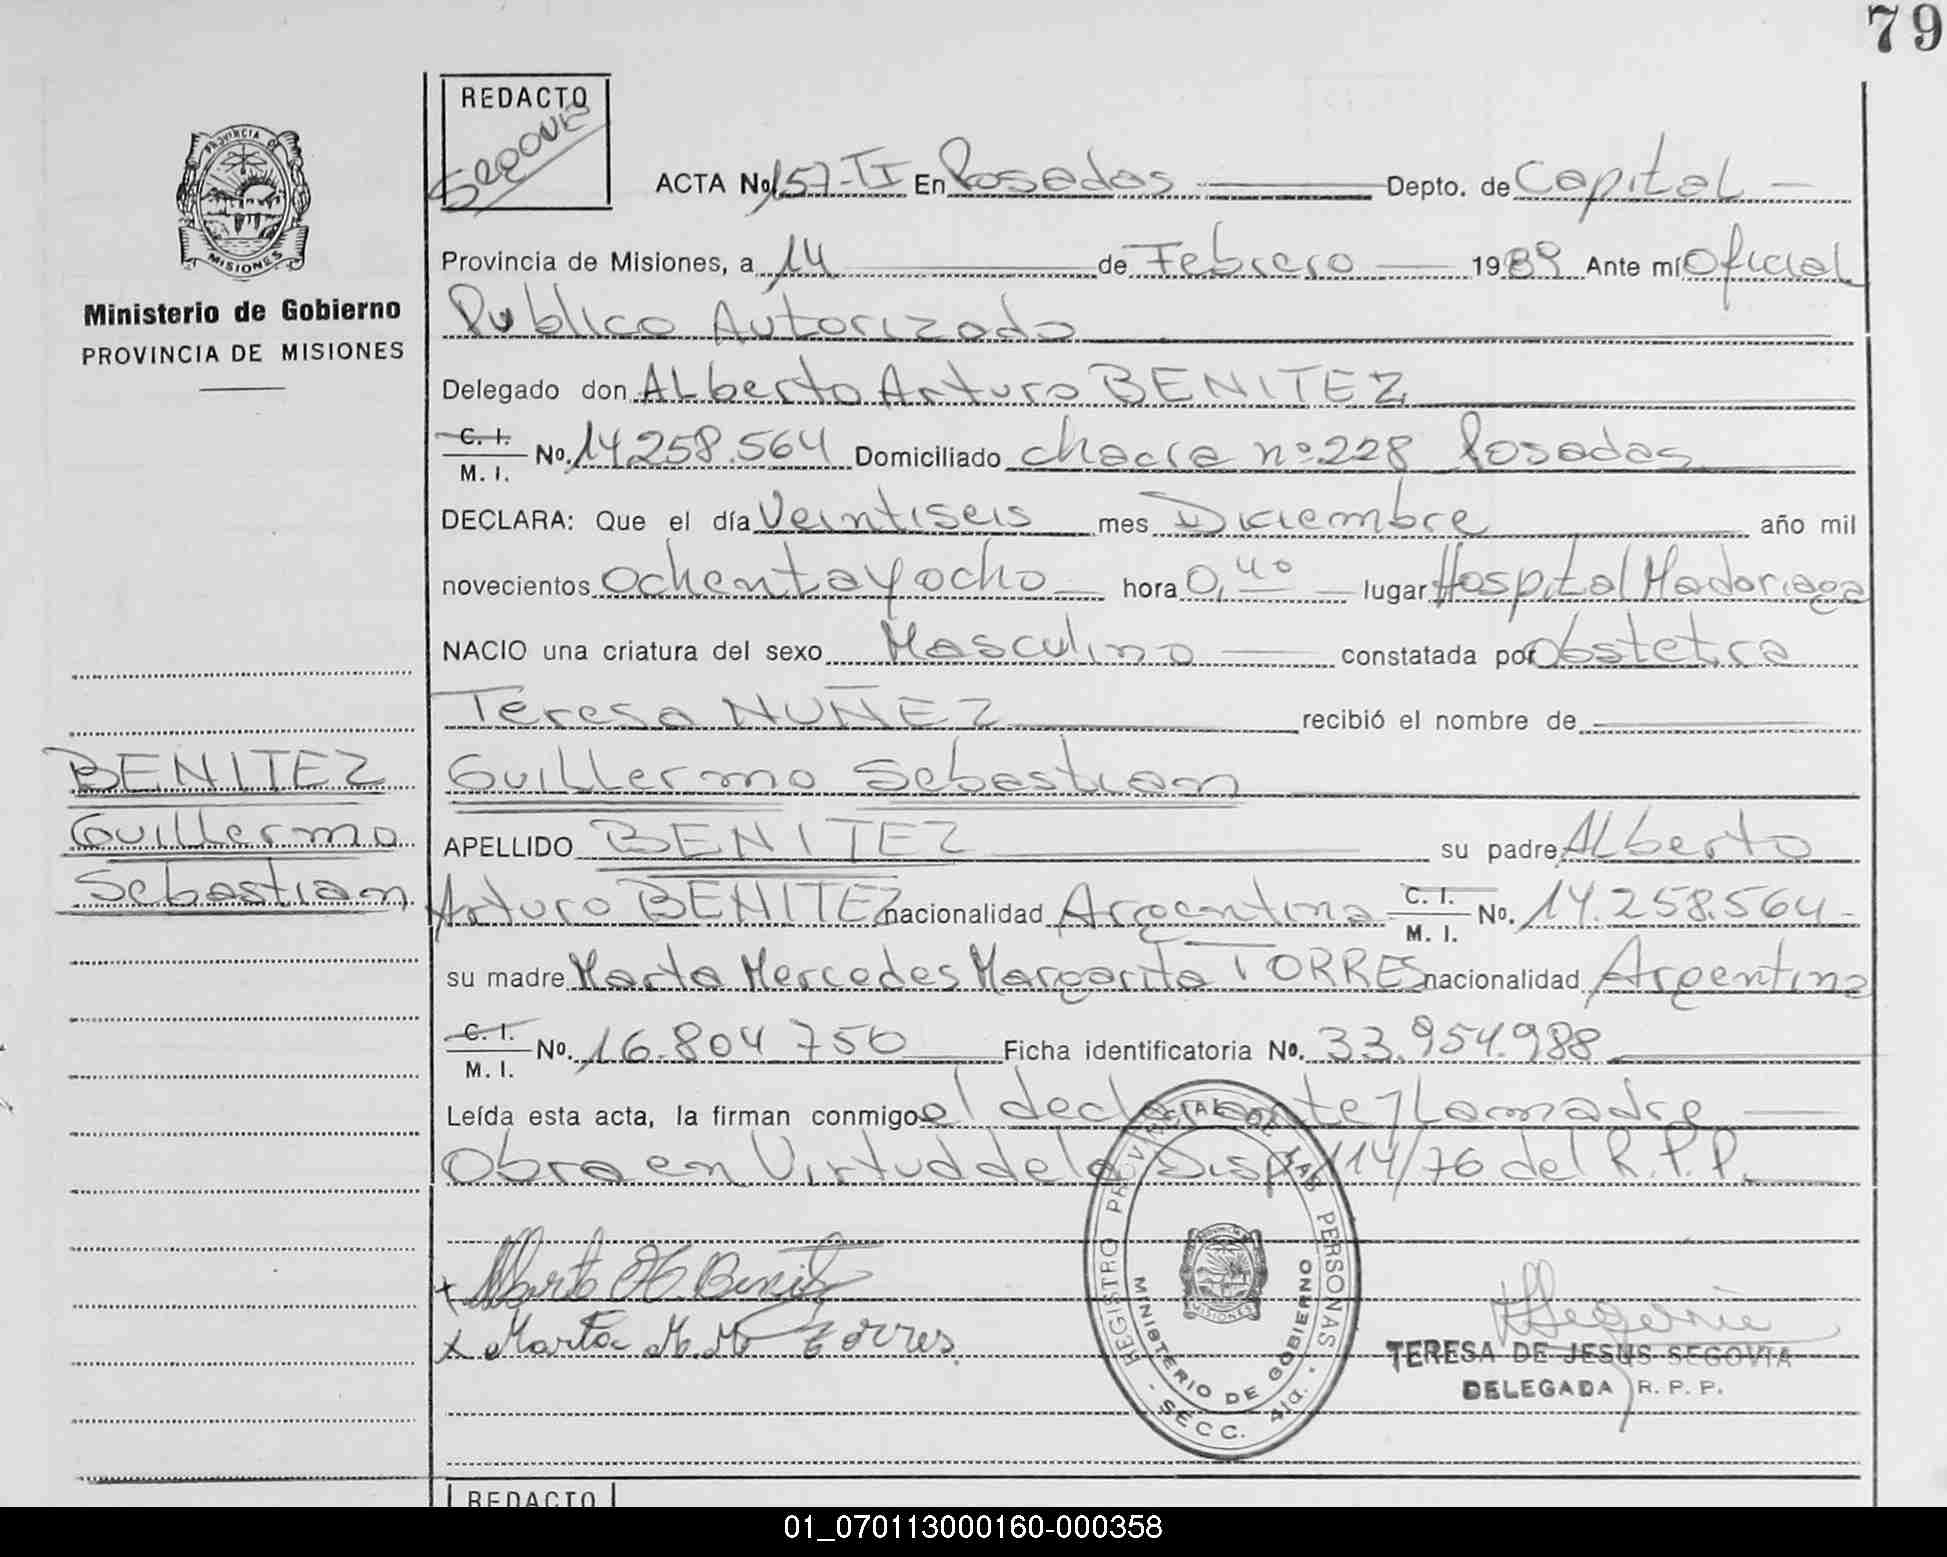 79
REDACTO
PROVINCIA DE
MISIONES
Ministerio de Gobierno
PROVINCIA DE MISIONES
ACTA No 157-TI En Posadas Depto. de Capital
Provincia de Misiones, a 14 de Febrero 1989 Ante mí Oficial
Publico Autorizado
Delegado don ALberto Arturo BENITEZ
C. I. M. I. No. 14.258.564 Domiciliado chacra nº 228 Posadas
DECLARA: Que el día Veintiseis mes Diciembre año mil
novecientos ochenta y ocho hora 0,40 lugar Hospital Madariaga
NACIO una criatura del sexo Masculino constatada por Obstetra
Teresa NUÑEZ recibió el nombre de
BENITEZ
Guillermo
Sebastian
Guillermo Sebastian
APELLIDO BENITEZ su padre ALberto
Arturo BENITEZ nacionalidad Argentina C. I. M. I. No. 14.258.564
su madre Marta Mercedes Margarita TORRES nacionalidad Argentina
C. I. M. I. No. 16.804.750 Ficha identificatoria No. 33.954.988
Leída esta acta, la firman conmigo el declarante y La madre
Obra en Virtud de la Disp 114/76 del R.P.P.
Alberto A. Benitez
Marta M. M. Torres.
REGISTRO PROVINCIAL DE LAS PERSONAS
MINISTERIO DE GOBIERNO
MISIONES
SECC. 4ta.
TERESA DE JESUS SEGOVIA
DELEGADA R. P. P.
REDACTO
01_070113000160-000358